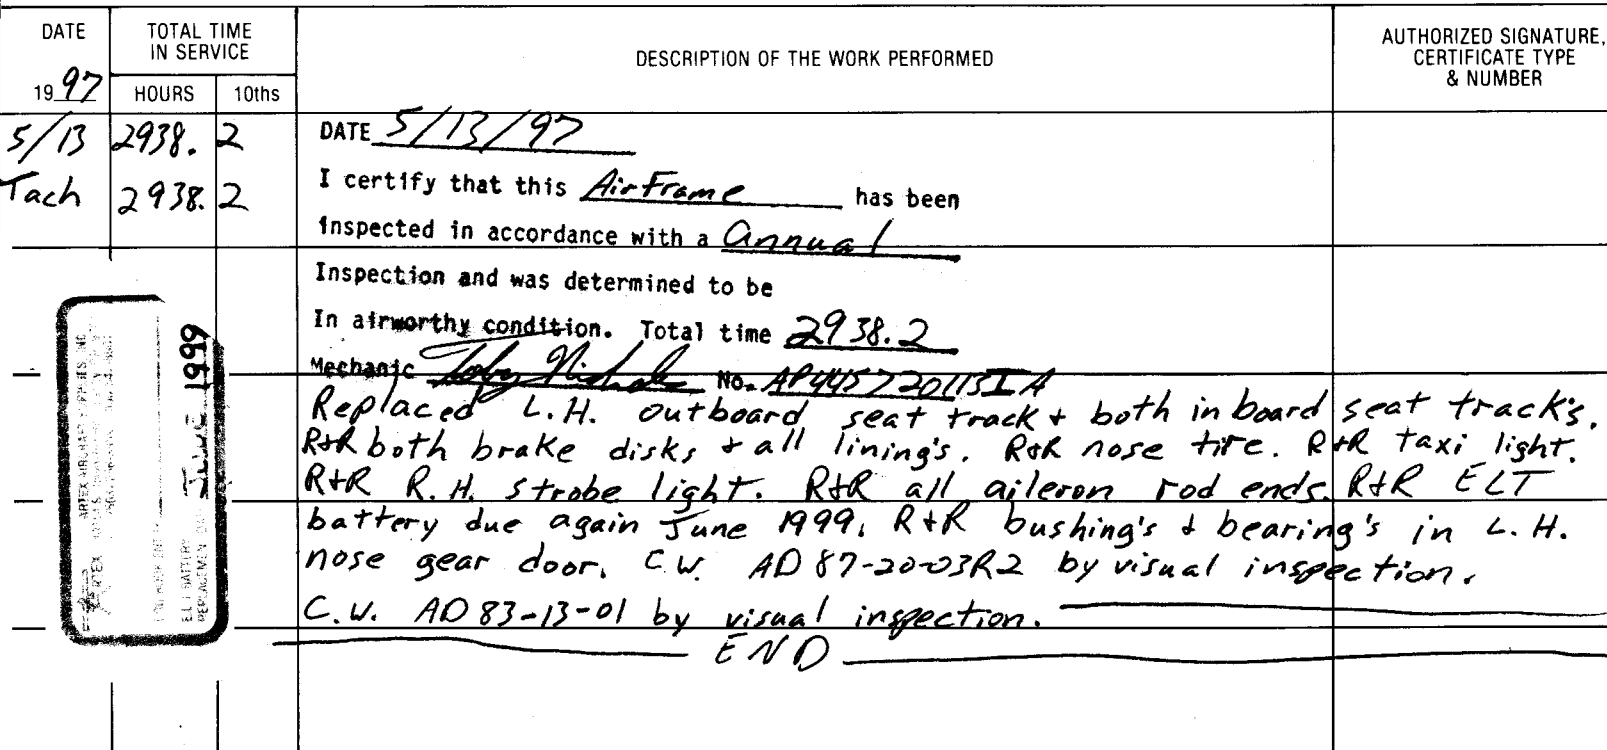 DATE
TOTAL TIME
IN SERVICE
DESCRIPTION OF THE WORK PERFORMED
AUTHORIZED SIGNATURE,
CERTIFICATE TYPE
& NUMBER
1997 HOURS 10ths
5/13 2938. 2
Tach 2938. 2
DATE 5/13/97
I certify that this AirFrame has been
inspected in accordance with a annual
Inspection and was determined to be
In airworthy condition. Total time 2938.2
Mechanic Toby Nichols No. AP445720113IA
Replaced L.H. outboard seat track + both inboard seat track's.
R+R both brake disks + all lining's. R+R nose tire. R+R taxi light.
R+R R.H. strobe light. R+R all aileron rod ends. R+R ELT
battery due again June 1999. R+R bushing's + bearing's in L.H.
nose gear door. C.W. AD 87-20-03R2 by visual inspection.
C.W. AD 83-13-01 by visual inspection.
END
ELT BATTERY
REPLACEMENT JUNE 1999